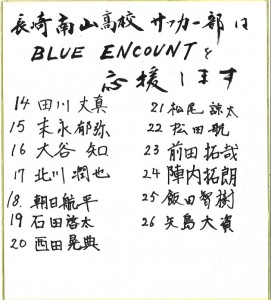 長崎南山高校サッカー部は
BLUE ENCOUNTを
応援します
14 田川丈真
15 末永郁弥
16 大谷 知
17 北川潤也
18. 朝日航平
19 石田啓太
20 西田晃典
21 松尾諒太
22 松田 航
23 前田拓哉
24 陣内拓朗
25 飯田智樹
26 矢島大資